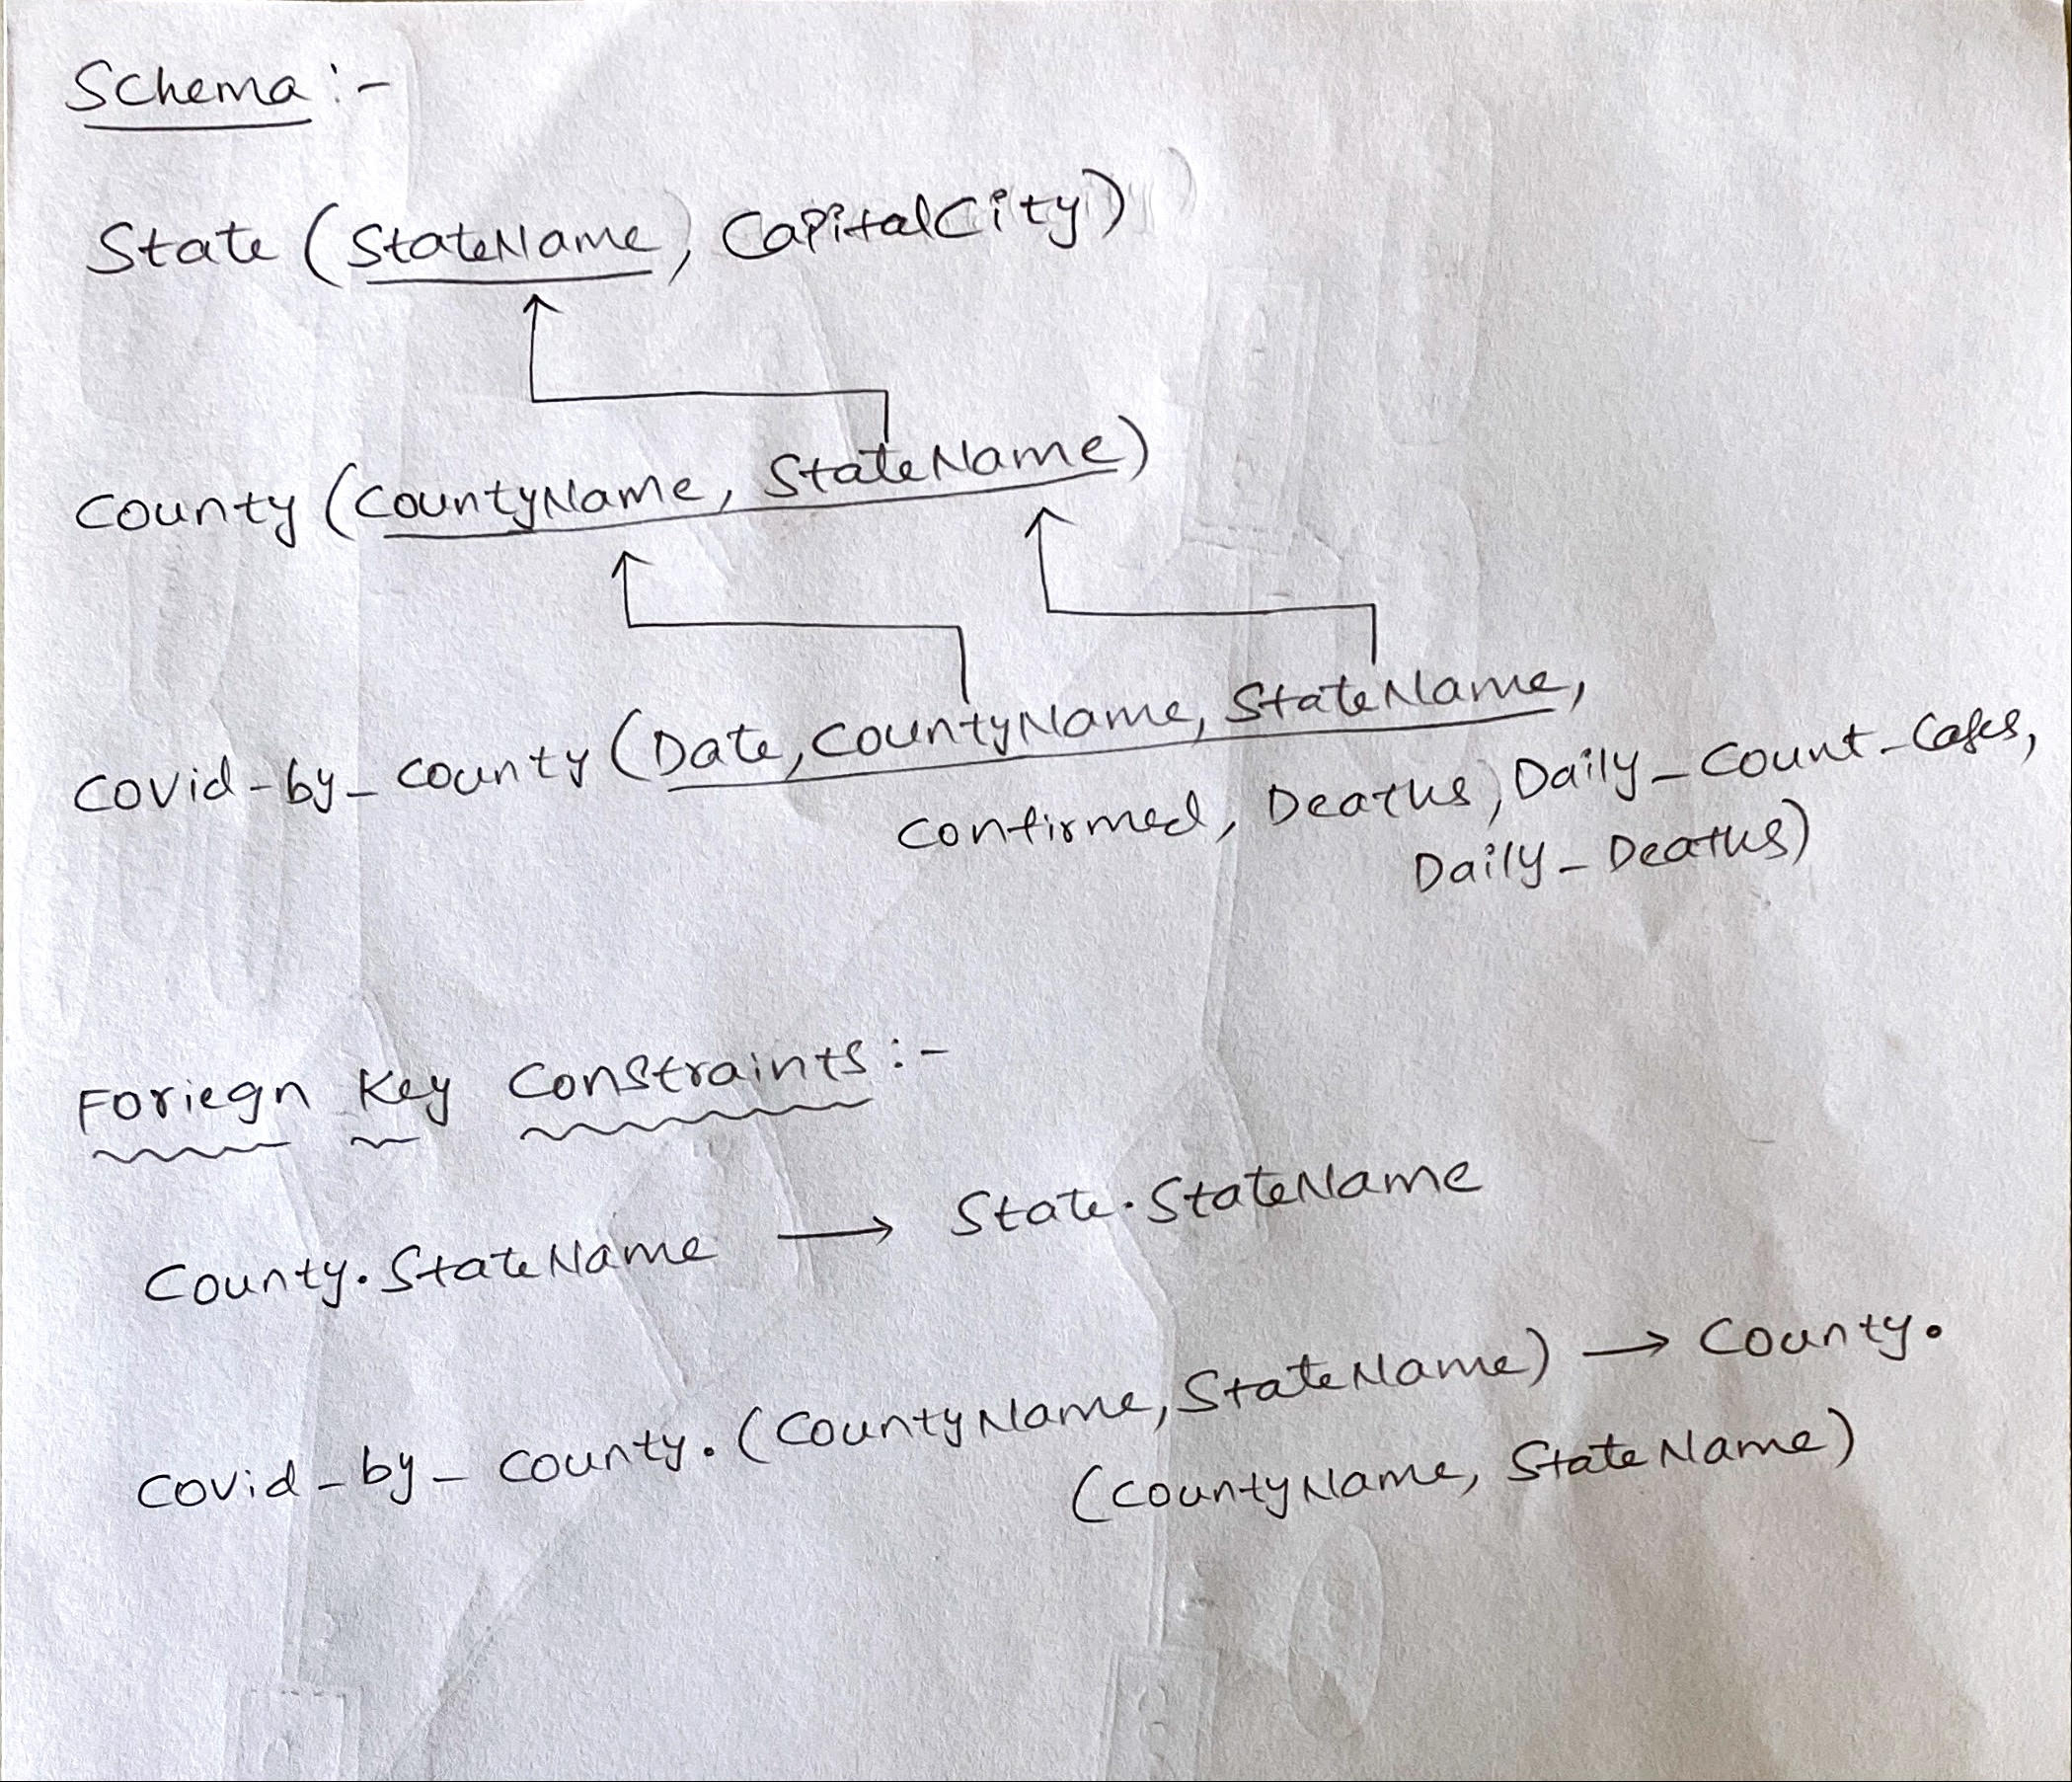 Schema :-
State (StateName, CapitalCity)
County (CountyName, StateName)
Covid-by_County (Date, CountyName, StateName,
Confirmed, Deaths, Daily_Count_Cases,
Daily_Deaths)
Foriegn Key Constraints :-
County.StateName → State.StateName
Covid_by_County.(CountyName, StateName) → County.
(CountyName, StateName)